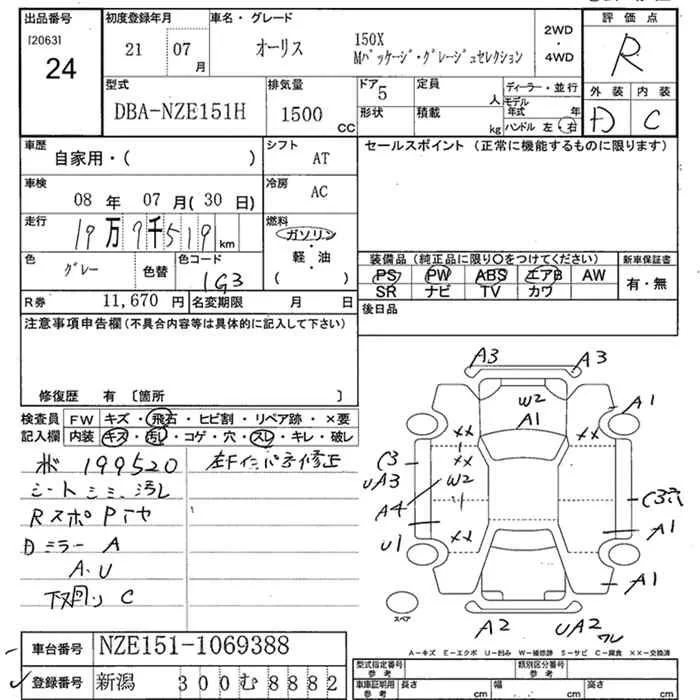 出品番号
[2063]
24
初度登録年月
21 07 月
車名・グレード
オーリス
150X
Mパッケージ・グレージュセレクション
2WD
・
4WD
評価点
R
型式
DBA-NZE151H
排気量
1500 CC
ドア 5
形状
定員 人
積載 kg
ディーラー・並行
モデル年式 年
ハンドル 左・右
外装 内装
D C
車歴
自家用・( )
シフト AT
セールスポイント (正常に機能するものに限ります)
車検
08 年 07 月(30 日)
冷房 AC
走行
19万9千519 km
燃料
ガソリン
・
軽・油
( )
色 グレー 色替
色コード 1G3
装備品 (純正品に限り○をつけてください)
新車保証書
PS PW ABS エアB AW
SR ナビ TV カワ
有・無
R券 11,670 円
名変期限 月 日
後日品
注意事項申告欄 (不具合内容等は具体的に記入して下さい)
修復歴 有 〔箇所 〕
検査員記入欄
FW キズ・飛石・ヒビ割・リペア跡・×要
内装 キズ・汚レ・コゲ・穴・スレ・キレ・破レ
199520
シートシミ、汚レ
RスポPTヤ
Dミラー A
A・U
下回り C
A3 A3
W2
A1
A1
×× ××
××
C3
UA3
W2
A4
C3穴
U1
××
××
A1
A1
スペア
A2
UA2
ワレ
A-キズ E-エクボ U-凹み W-補修跡 S-サビ C-腐食 ××-交換済
車台番号 NZE151-1069388
登録番号 新潟 300む8882
型式指定番号 参考
類別区分番号 参考
車庫証明用 参考
長さ cm
幅 cm
高さ cm